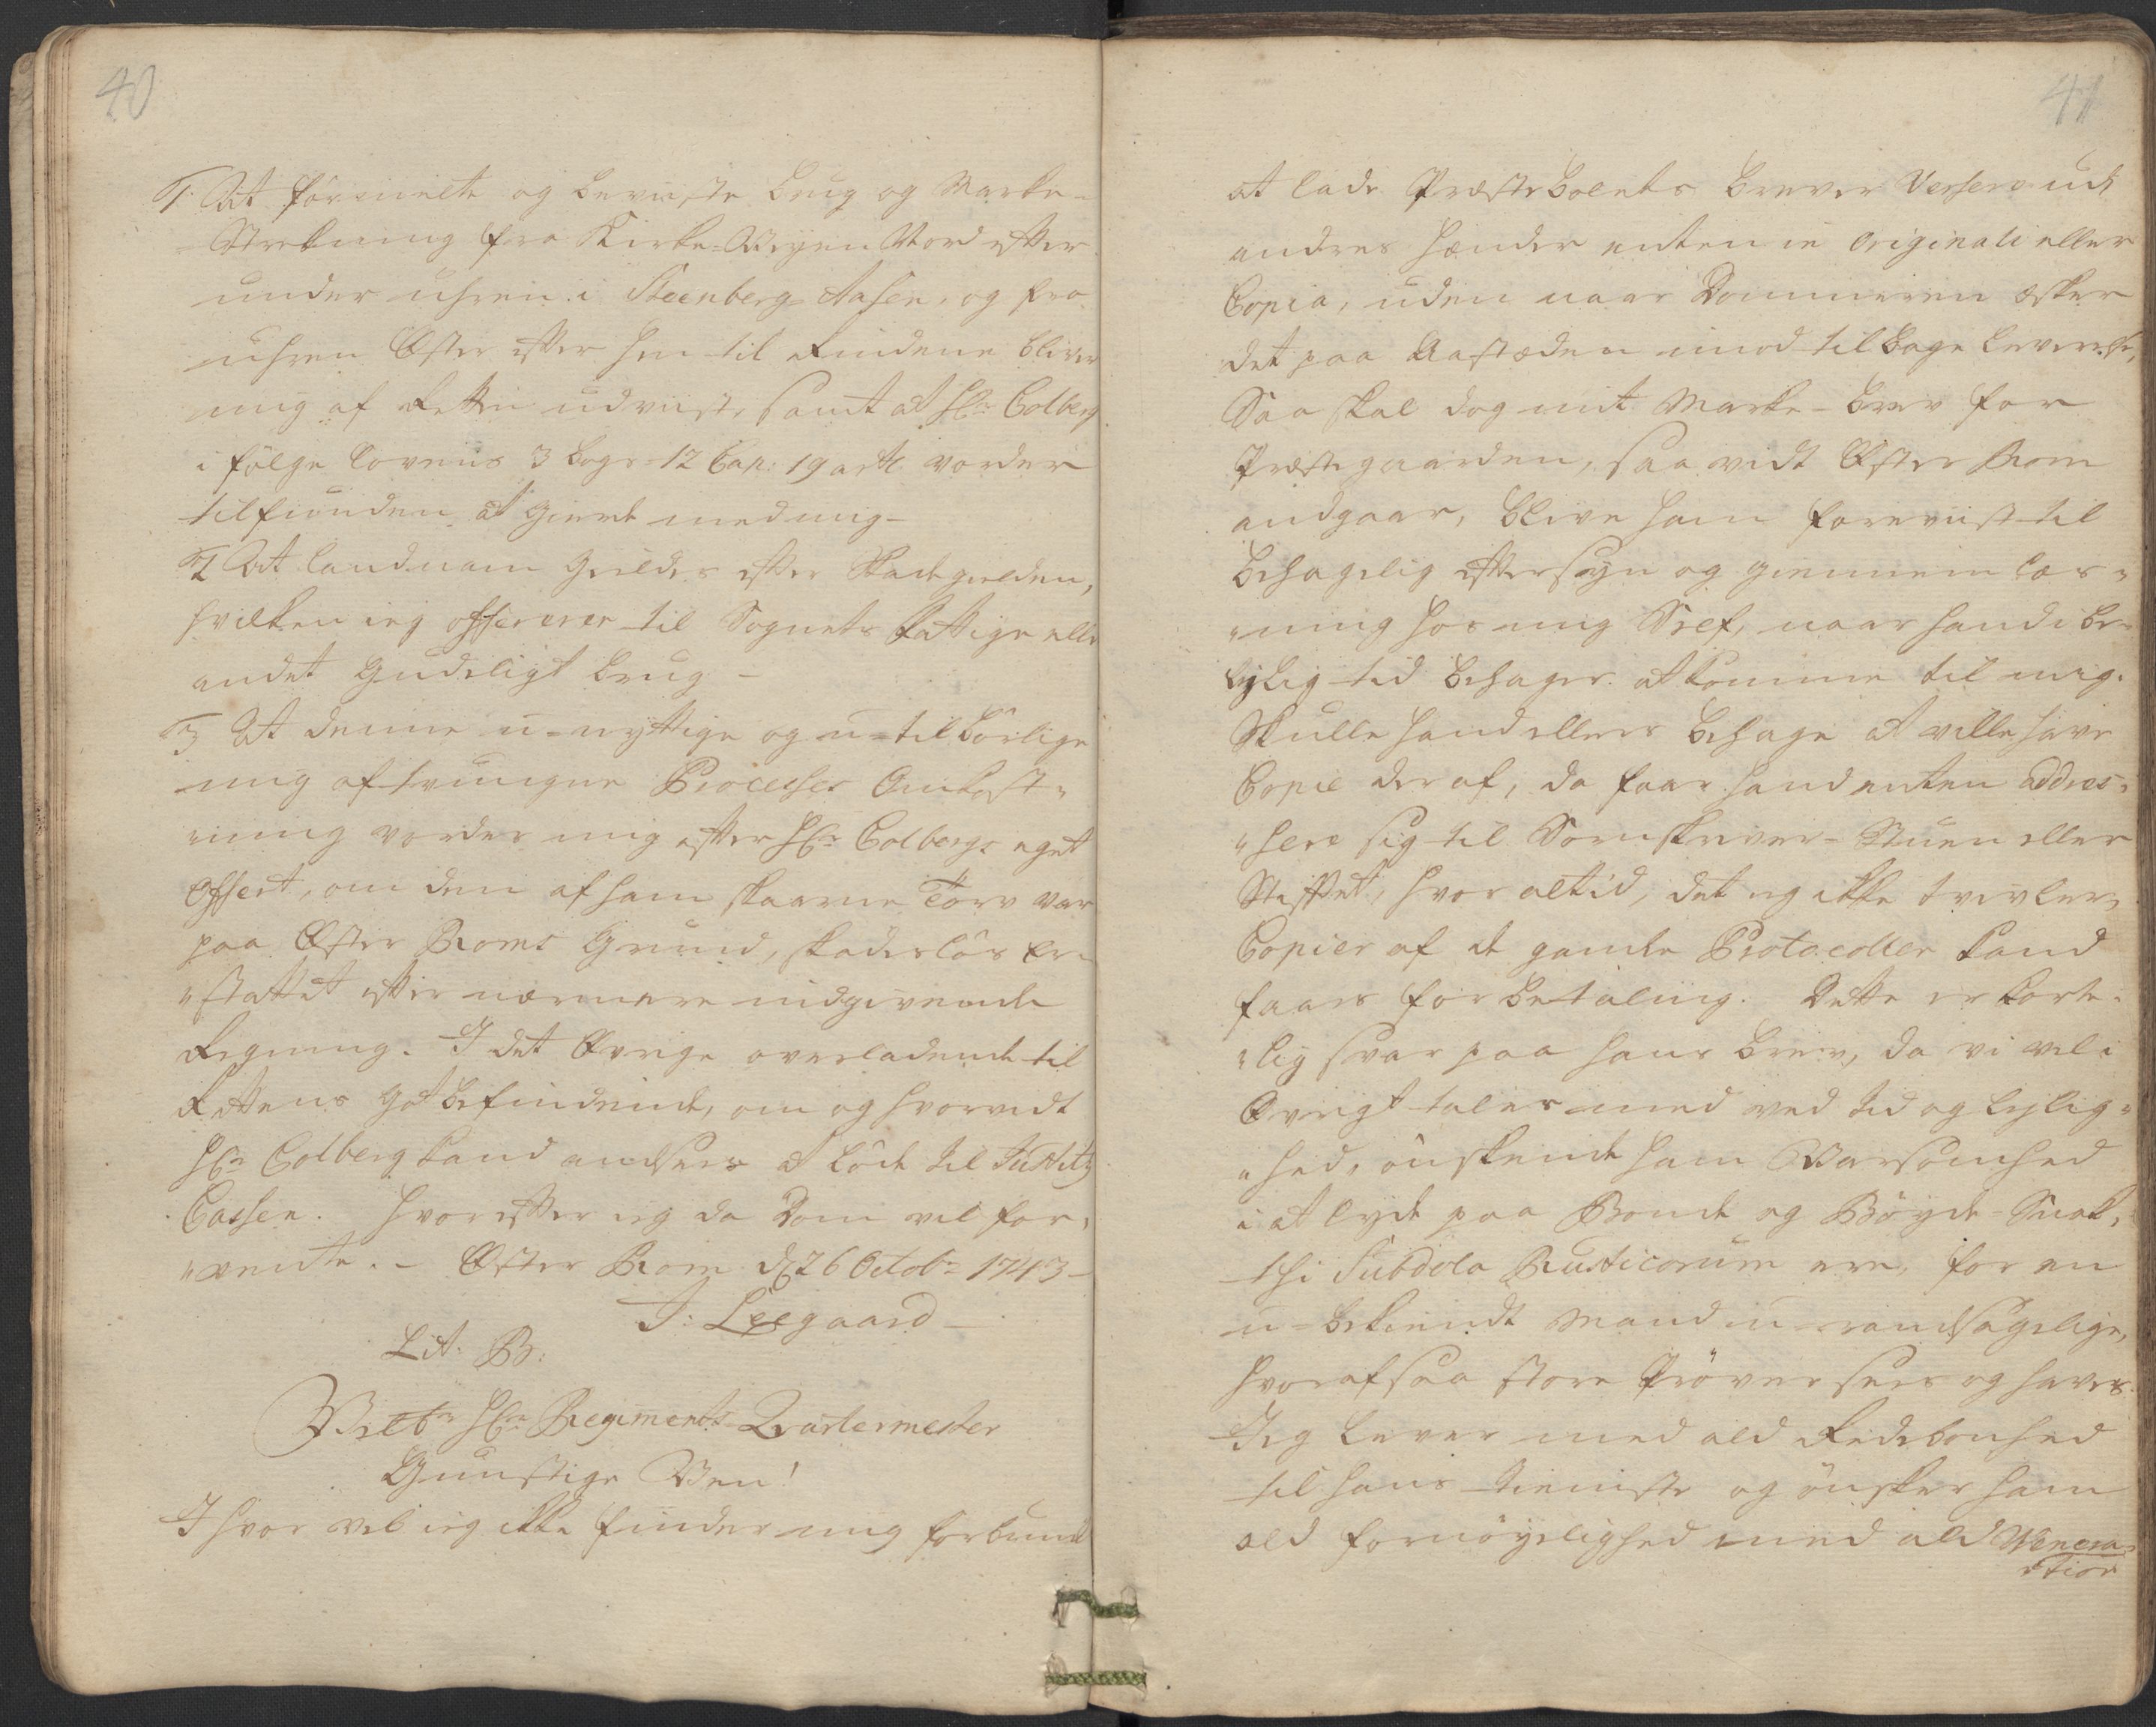 40
1. At formelte og beviiste brug og Marke-
Strekning fra Kirke-Veyen Nord efter
under uhren i Steenberg Aasen, og fra
uhren Øster efter hen til Eindene bliver
mig af Retten udviist, samt at Hr: Colberg
i følge Lovens 3 bogs 12 Cap: 19 artl vorder
tilfunden at gierde med mig-
2 At landnam gielder efter Skadegielden,
hvilken ieg offererer til Sognets fattige eller
andet Gudeligt brug -
3 At denne u-nyttige og u-tilbörlige
mig aftvungne Processes Omkost-
ning vorder mig efter Hr: Colbergs eget
Offert, om den af ham skaarne Törv var
paa Øster Roms Grund, skadeslös er-
stattet efter nærmere indgivende
Regning. I det Øvrige overladende til
Rettens Got befindende, om og hvorvidt
Hr: Colberg kand andsees at böde til Justitz
Cassen. Hvorefter ieg da Dom vil for-
vendte. - Øster Rom d. 26 Octobr 1743-
J: Leegaard
Lit: B:
Velbr Hr: Regiments Qvartermester
Gunstige Ven!
I hvor vel ieg ikke finder mig forbunden
41
at lade Præstebolets breve Versere udi
andres hænder enten in Originali eller
Copia, uden naar Dommeren æsker
det paa Aastæden imod tilbage leverelse,
Saa skal dog mit Marke-brev for
Præstegaarden, saa vidt Øster Rom
andgaar, blive ham foreviist til
behagelig eftersyn og giennem læs-
ning hos mig Self, naar hand i be-
leylig tid behager at komme til mig.
Skulle hand ellers behage at ville have
Copie deraf, da faar hand enten addres-
sere sig til Sorenskriver-Stuen eller
Stiftet, hvor altid, det ieg ikke tvivler,
Copier af de gamle Protocoller kand
faaes for betaling. Dette er korte-
lig svar paa hans brev, da vi vel i
Øvrigt tales med ved tid og leylig-
hed, önskende ham Varsomhed
i at lyde paa Bonde og Böyde-Snak,
thi Subdola Rusticorum ere, for en
u-bekiendt Mand u-randsagelige,
hvoraf saa store Pröver sees og haves.
Jeg lever med ald Redebonhed
til hans tieniste og önsker ham
ald fornöyelighed med ald Venera-
tion